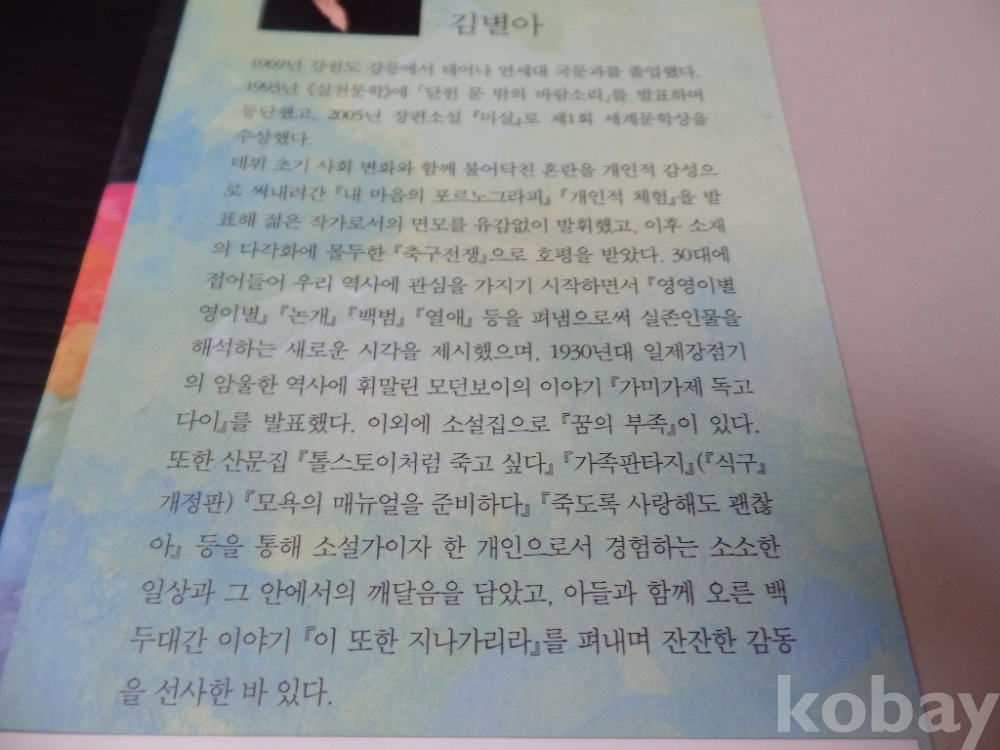 김별아
1969년 강원도 강릉에서 태어나 연세대 국문과를 졸업했다.
1993년 《실천문학》에 「닫힌 문 밖의 바람소리」를 발표하며
등단했고, 2005년 장편소설 『미실』로 제1회 세계문학상을
수상했다.
데뷔 초기 사회 변화와 함께 불어닥친 혼란을 개인적 감성으
로 써내려간 『내 마음의 포르노그라피』 『개인적 체험』을 발
표해 젊은 작가로서의 면모를 유감없이 발휘했고, 이후 소재
의 다각화에 몰두한 『축구전쟁』으로 호평을 받았다. 30대에
접어들어 우리 역사에 관심을 가지기 시작하면서 『영영이별
영이별』 『논개』 『백범』 『열애』 등을 펴냄으로써 실존인물을
해석하는 새로운 시각을 제시했으며, 1930년대 일제강점기
의 암울한 역사에 휘말린 모던보이의 이야기 『가미가제 독고
다이』를 발표했다. 이외에 소설집으로 『꿈의 부족』이 있다.
또한 산문집 『톨스토이처럼 죽고 싶다』 『가족판타지』(『식구』
개정판) 『모욕의 매뉴얼을 준비하다』 『죽도록 사랑해도 괜찮
아』 등을 통해 소설가이자 한 개인으로서 경험하는 소소한
일상과 그 안에서의 깨달음을 담았고, 아들과 함께 오른 백
두대간 이야기 『이 또한 지나가리라』를 펴내며 잔잔한 감동
을 선사한 바 있다.
kobay